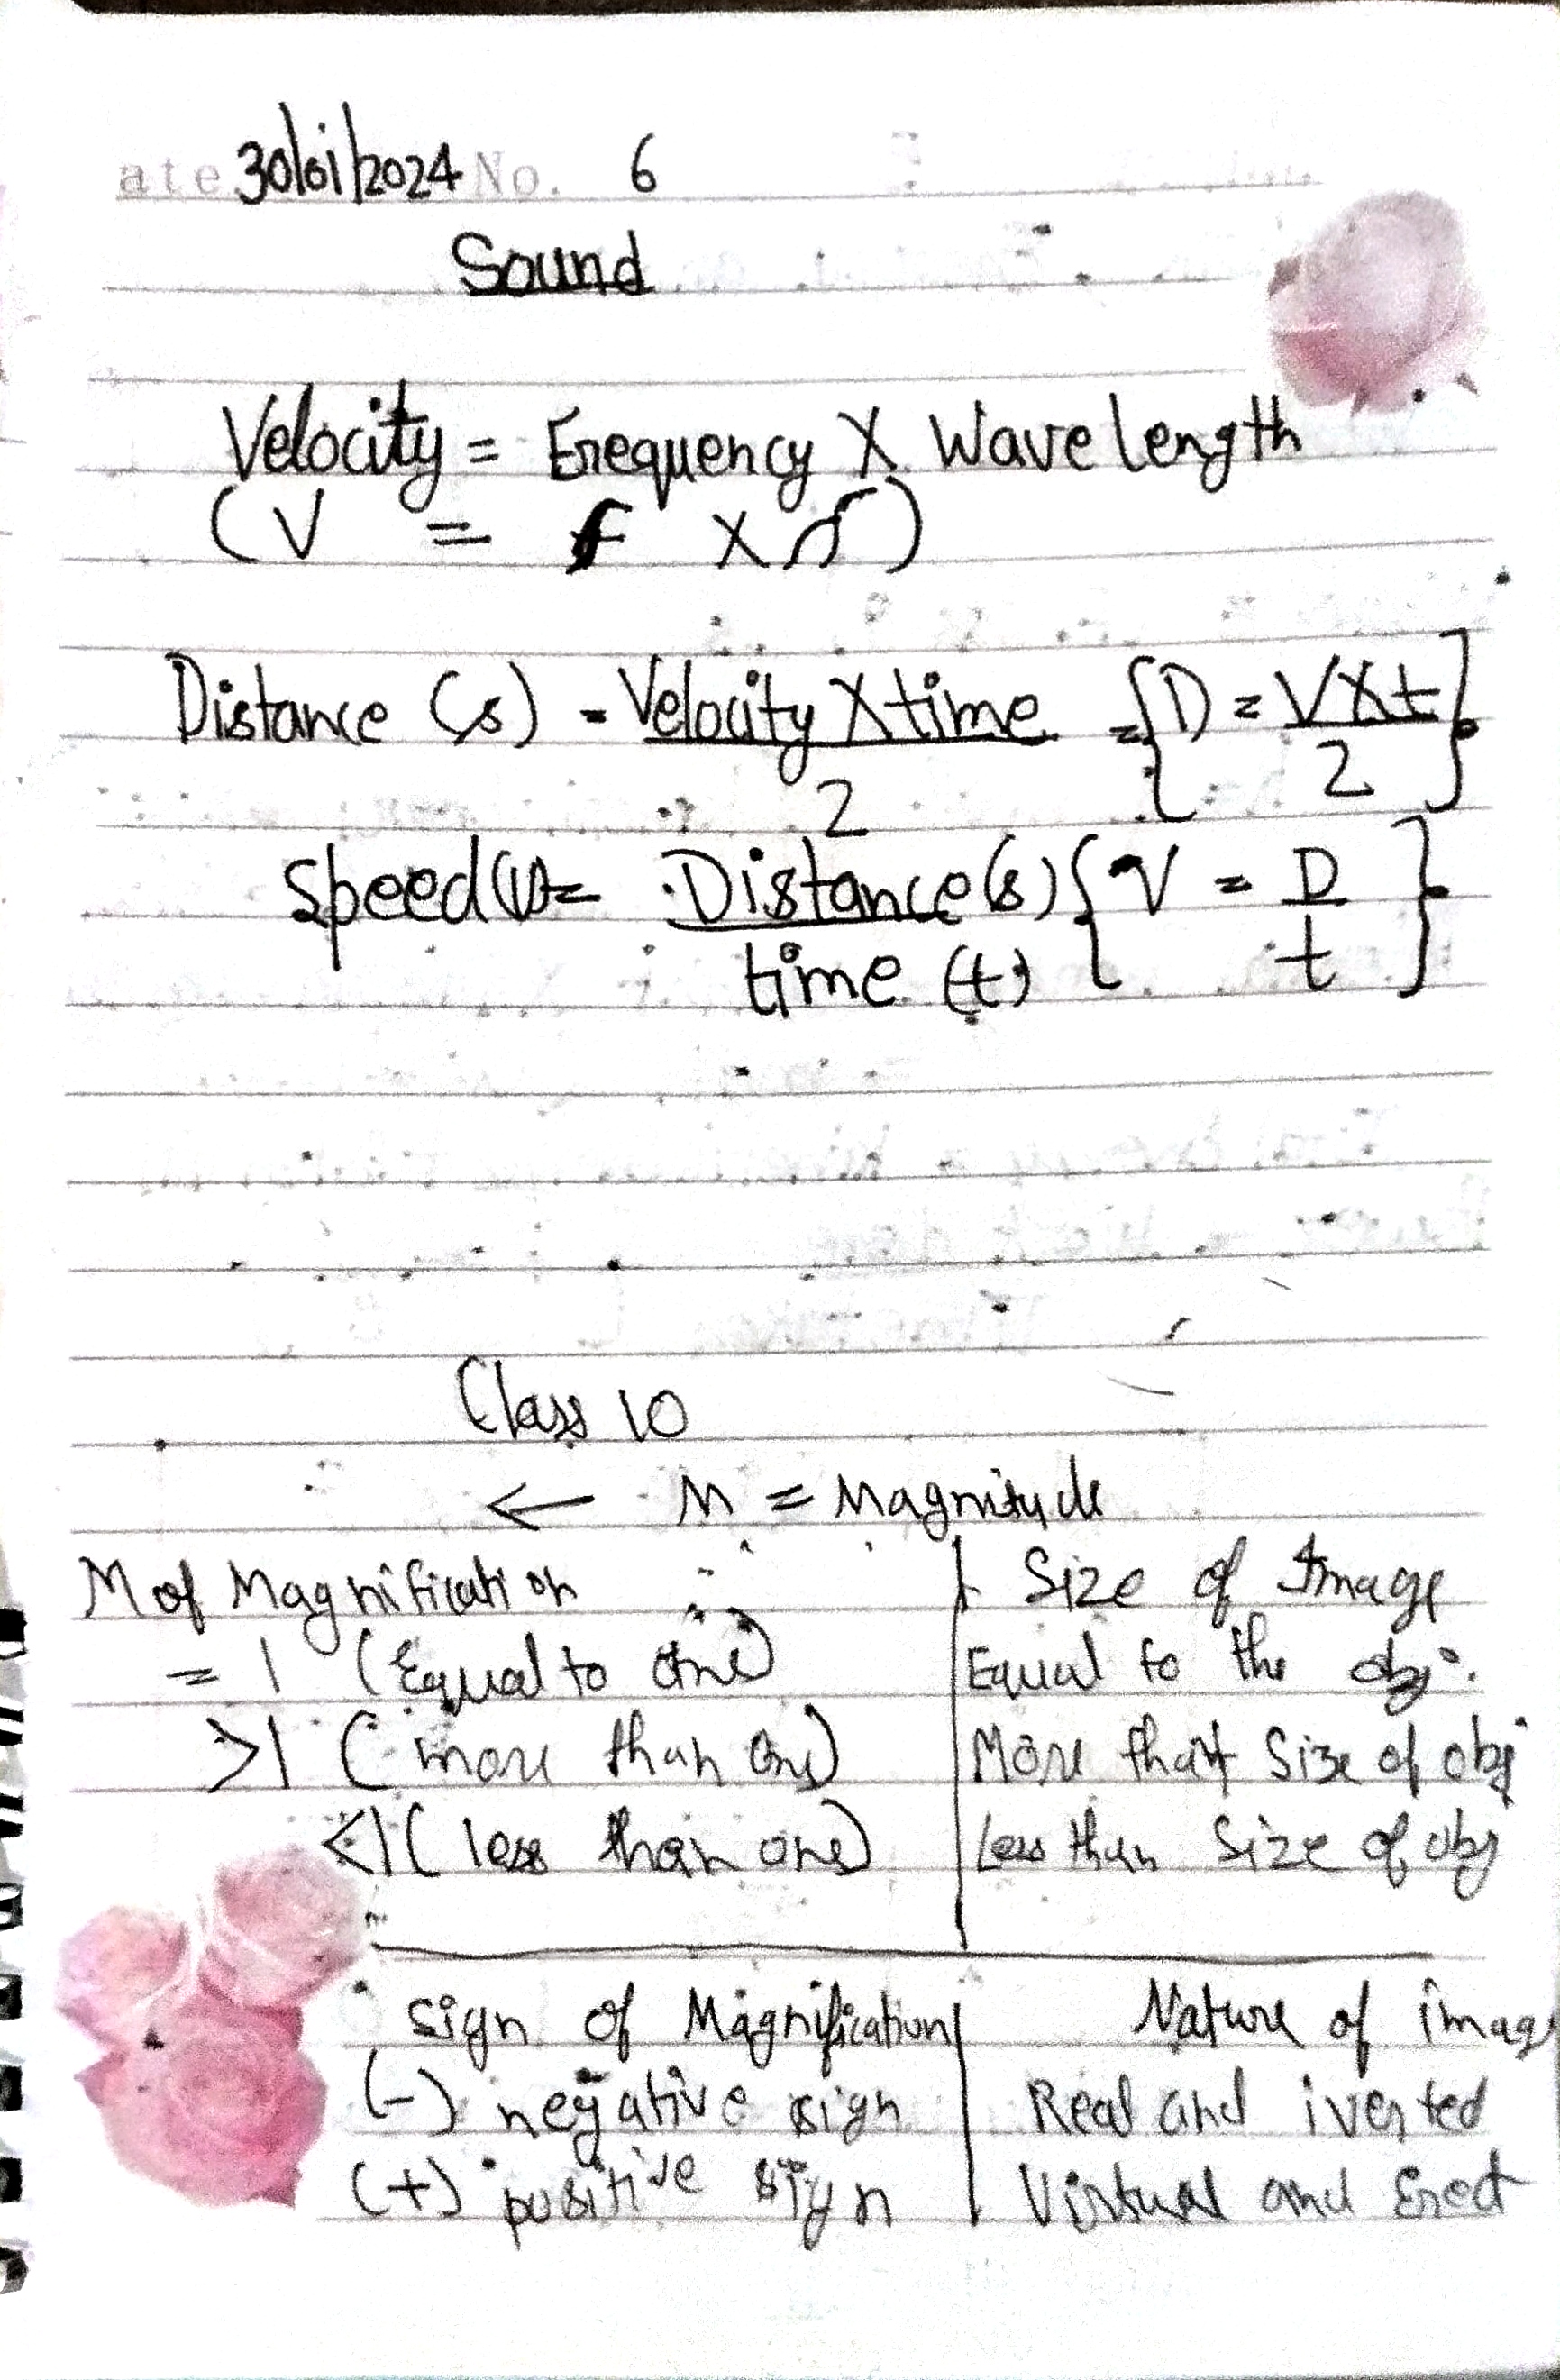 ate 30/01/2024 No. 6
Sound
Velocity = Frequency X Wavelength
(V = f X λ)
Distance (s) = Velocity X time = {D = V X t}
2 2
Speed (v) = Distance (s) {V = D }
time (t) t
Class 10
← M = Magnitude
M of Magnification | Size of Image
= 1 (Equal to one) | Equal to the obj.
>1 (more than one) | More than Size of obj
<1 (less than one) | Less than Size of obj
Sign of Magnification | Nature of imag
(-) negative sign | Real and iverted
(+) positive sign | Virtual and Erect